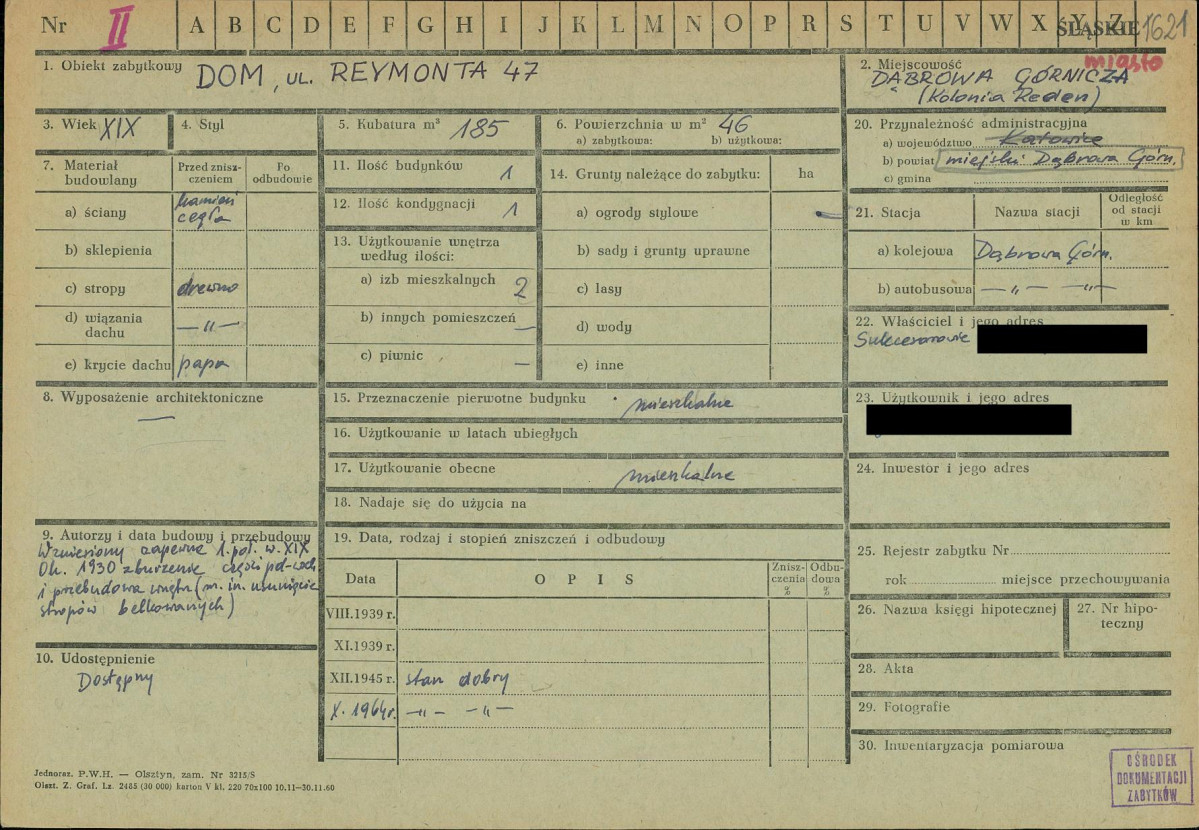 Nr II A B C D E F G H I J K L M N O P R S T U V W X Y Z ŚLĄSKIE 1621
miasto
1. Obiekt zabytkowy DOM, UL. REYMONTA 47
2. Miejscowość
DĄBROWA GÓRNICZA
(Kolonia Reden)
3. Wiek XIX
4. Styl
5. Kubatura m³ 185
6. Powierzchnia w m² 46
a) zabytkowa: b) użytkowa:
20. Przynależność administracyjna
a) województwo Katowice
b) powiat miejski: Dąbrowa Górn.
c) gmina
7. Materiał budowlany
Przed zniszczeniem
Po odbudowie
a) ściany kamień
cegła
b) sklepienia
c) stropy drewno
d) wiązania dachu —„—
e) krycie dachu papa
11. Ilość budynków 1
12. Ilość kondygnacji 1
13. Użytkowanie wnętrza
według ilości:
a) izb mieszkalnych 2
b) innych pomieszczeń —
c) piwnic —
14. Grunty należące do zabytku: ha
a) ogrody stylowe —
b) sady i grunty uprawne
c) lasy
d) wody
e) inne
21. Stacja
Nazwa stacji
Odległość
od stacji
w km
a) kolejowa Dąbrowa Górn.
b) autobusowa —„— —„—
22. Właściciel i jego adres
Sukcesorowie
8. Wyposażenie architektoniczne
—
15. Przeznaczenie pierwotne budynku mieszkalne
16. Użytkowanie w latach ubiegłych
17. Użytkowanie obecne mieszkalne
18. Nadaje się do użycia na
23. Użytkownik i jego adres
24. Inwestor i jego adres
9. Autorzy i data budowy i przebudowy
Wzniesiony zapewne 1. poł. w. XIX
Ok. 1930 zburzenie części
i przebudowa wnętrz (m. in. usunięcie
stropów belkowanych)
10. Udostępnienie
Dostępny
19. Data, rodzaj i stopień zniszczeń i odbudowy
Data OPIS Zniszczenia % Odbudowa %
VIII.1939 r.
XI.1939 r.
XII.1945 r. stan dobry
X. 1964 r. —„— —„—
25. Rejestr zabytku Nr
rok miejsce przechowywania
26. Nazwa księgi hipotecznej
27. Nr hipoteczny
28. Akta
29. Fotografie
30. Inwentaryzacja pomiarowa
Jednoraz. P.W.H. — Olsztyn, zam. Nr 3215/S
Olszt. Z. Graf. Lz. 2485 (30 000) karton V kl. 220 70x100 10.11—30.11.60
OŚRODEK
DOKUMENTACJI
ZABYTKÓW